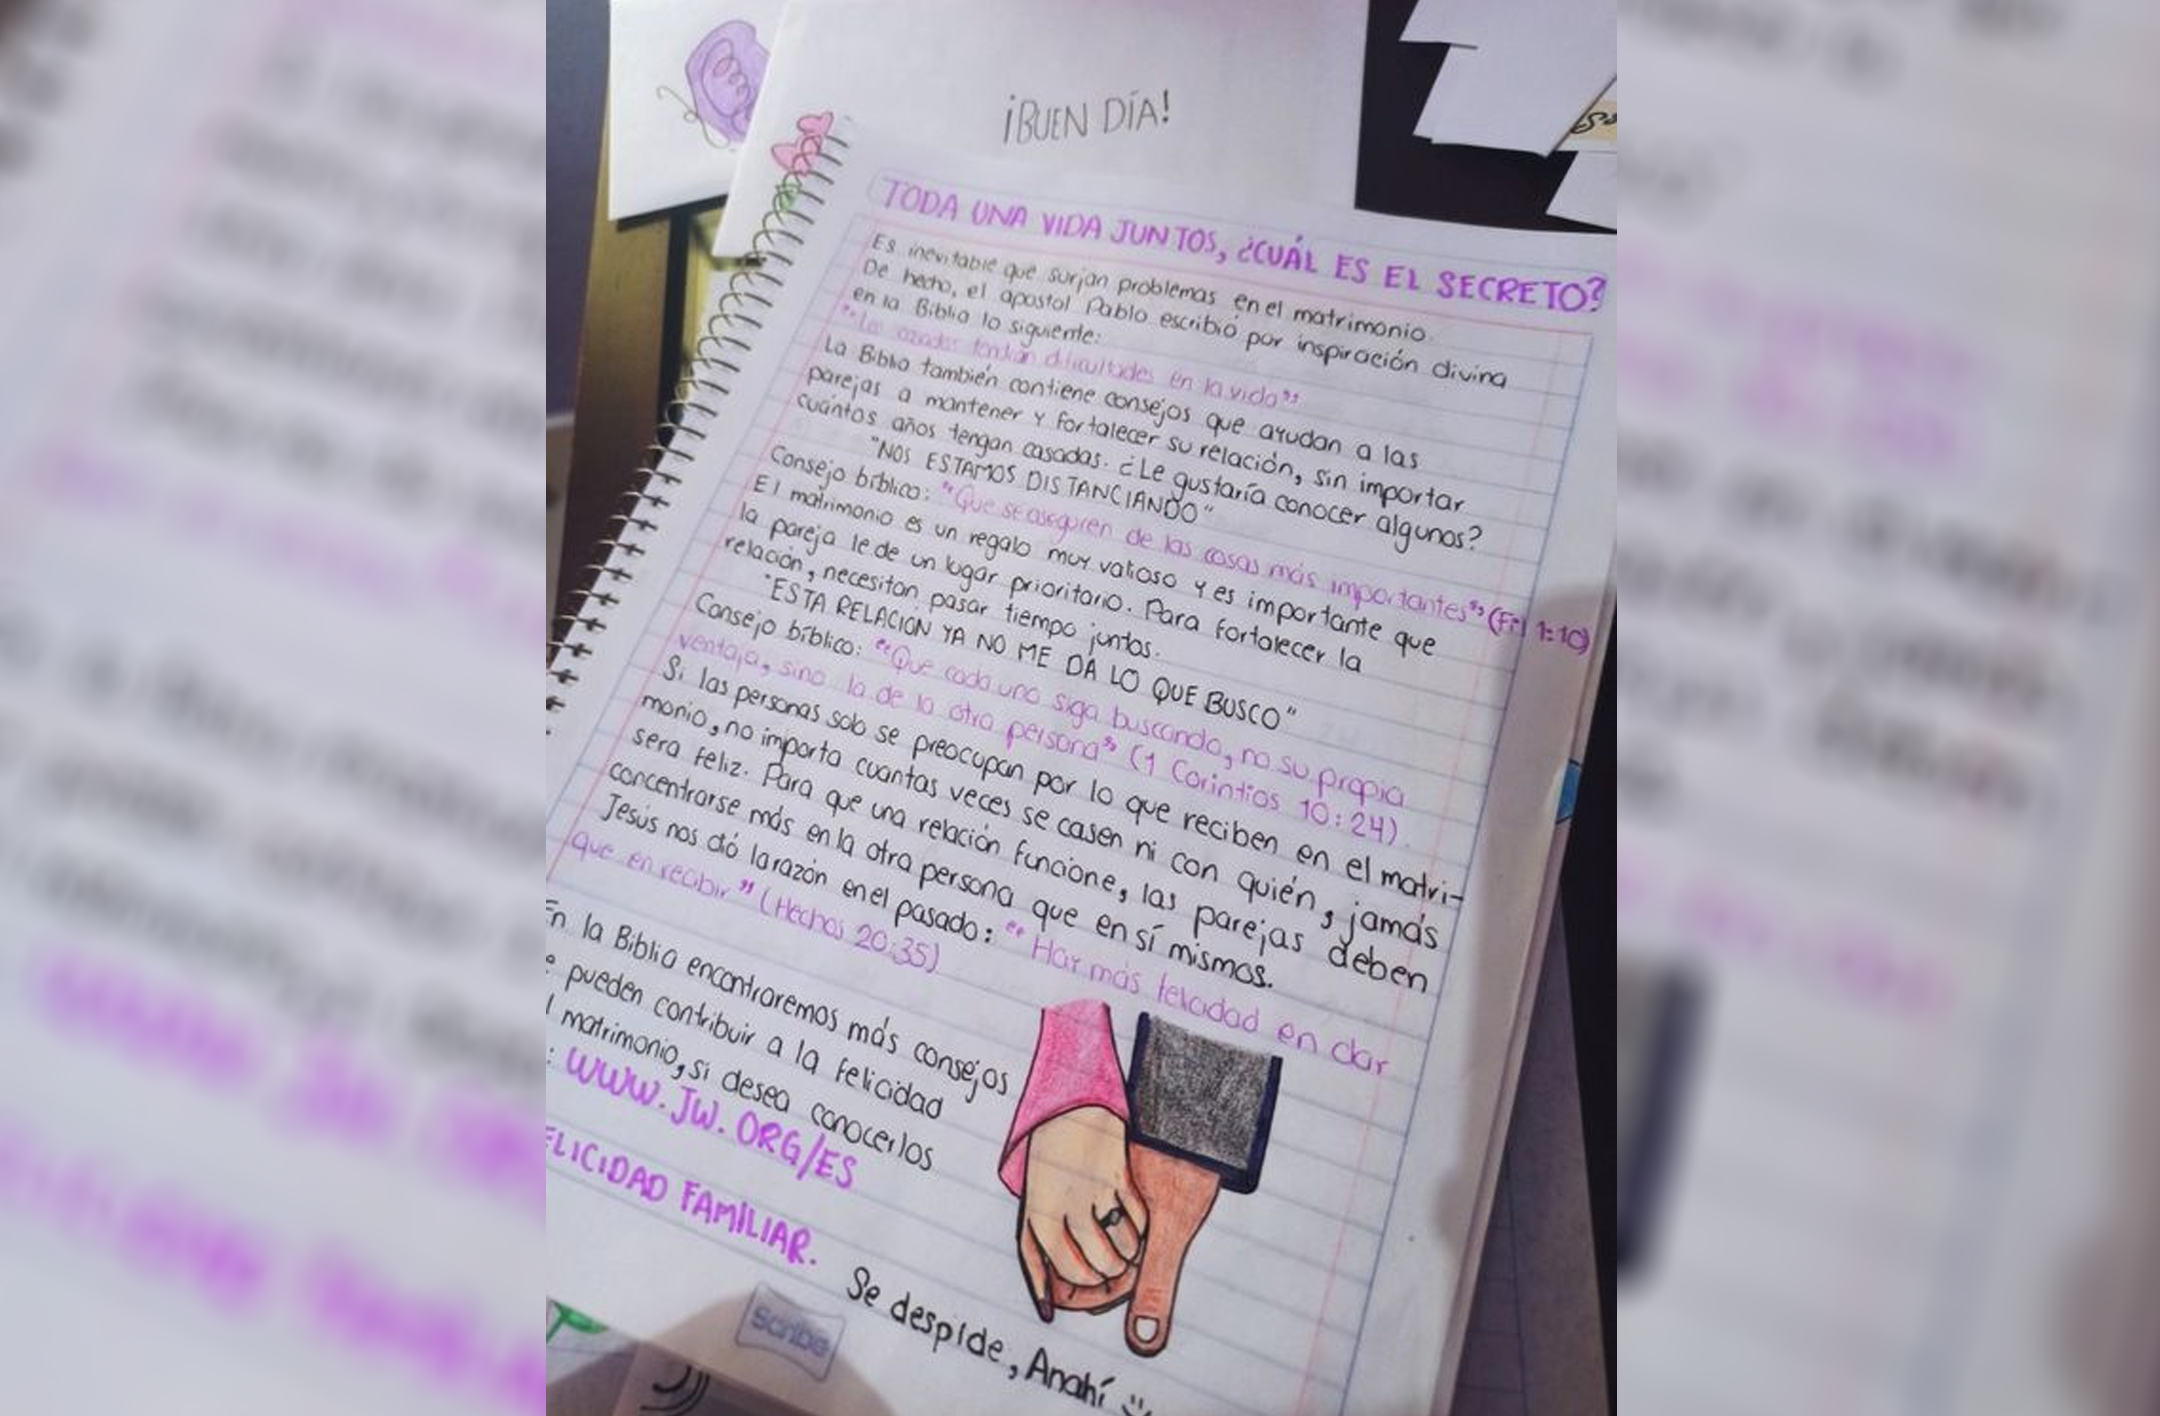 ¡BUEN DÍA!
TODA UNA VIDA JUNTOS, ¿CUÁL ES EL SECRETO?
Es inevitable que surjan problemas en el matrimonio.
De hecho, el apostol Pablo escribió por inspiración divina
en la Biblia lo siguiente:
"Los casados tendrán dificultades en la vida"
La Biblia también contiene consejos que ayudan a las
parejas a mantener y fortalecer su relación, sin importar
cuántos años tengan casadas. ¿Le gustaría conocer algunos?
"NOS ESTAMOS DISTANCIANDO"
Consejo bíblico: "Que se aseguren de las cosas más importantes" (Fil 1:10)
El matrimonio es un regalo muy valioso y es importante que
la pareja le de un lugar prioritario. Para fortalecer la
relación, necesitan pasar tiempo juntos.
"ESTA RELACION YA NO ME DA LO QUE BUSCO"
Consejo bíblico: "Que cada uno siga buscando, no su propia
ventaja, sino la de la otra persona" (1 Corintios 10:24).
Si las personas solo se preocupan por lo que reciben en el matri-
monio, no importa cuantas veces se casen ni con quién, jamás
sera feliz. Para que una relación funcione, las parejas deben
concentrarse más en la otra persona que en sí mismos.
Jesús nos dió la razón en el pasado: "Hay más felicidad en dar
que en recibir" (Hechos 20:35)
En la Biblia encontraremos más consejos
e pueden contribuir a la felicidad
l matrimonio, si desea conocerlos
: WWW.JW.ORG/ES
ELICIDAD FAMILIAR.
Se despide, Anahí
Scribe